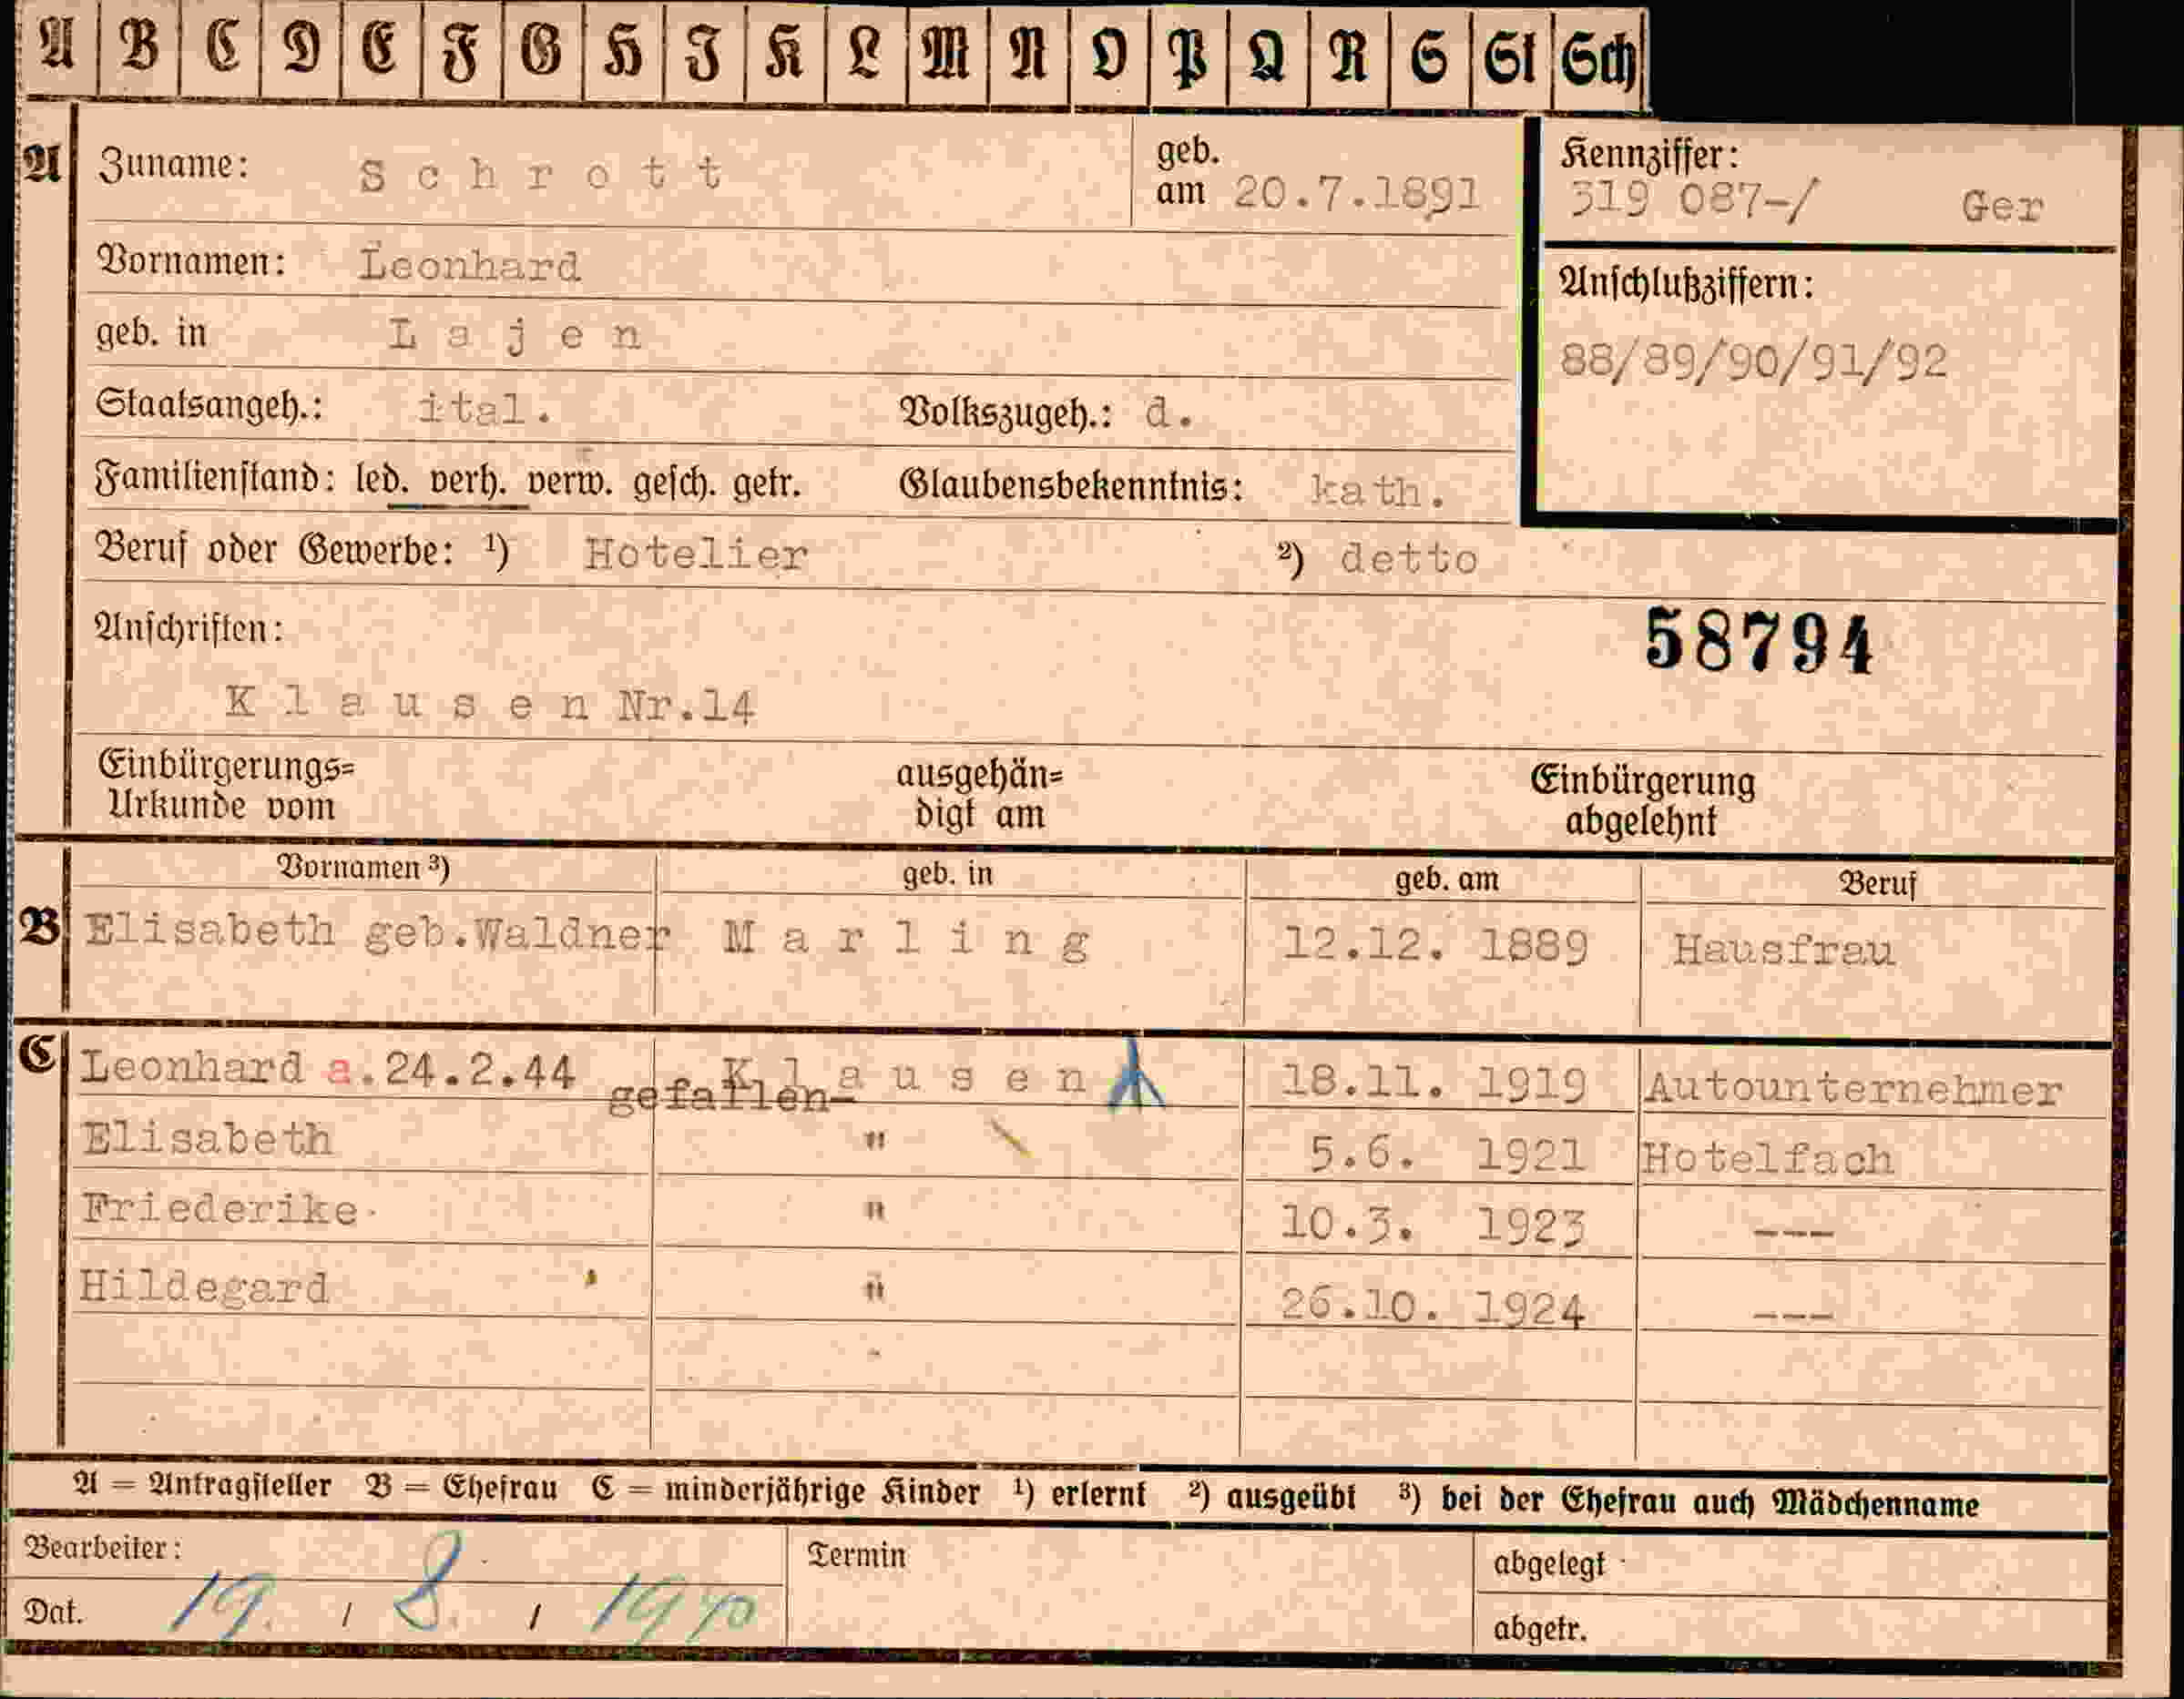 A B C D E F G H I K L M N O P Q R S St Sch
A Zuname: Schrott geb. am 20.7.1891 Kennziffer: 319 087-/ Ger
Vornamen: Leonhard Anschlußziffern:
geb. in Lajen 88/89/90/91/92
Staatsangeh.: ital. Volkszugeh.: d.
Familienstand: led. verh. verw. gesch. getr. Glaubensbekenntnis: kath.
Beruf oder Gewerbe: ¹) Hotelier ²) detto
Anschriften: 58794
Klausen Nr.14
Einbürgerungs= ausgehän= Einbürgerung
Urkunde vom digt am abgelehnt
Vornamen ³) geb. in geb. am Beruf
B Elisabeth geb.Waldner Marling 12.12. 1889 Hausfrau
C Leonhard a.24.2.44 gefallen- Klausen 18.11. 1919 Autounternehmer
Elisabeth " 5.6. 1921 Hotelfach
Friederike " 10.3. 1923 ---
Hildegard " 26.10. 1924 ---
A = Antragsteller B = Ehefrau C = minderjährige Kinder ¹) erlernt ²) ausgeübt ³) bei der Ehefrau auch Mädchenname
Bearbeiter: Termin abgelegt
Dat. 19. / 8. / 1940 abgetr.